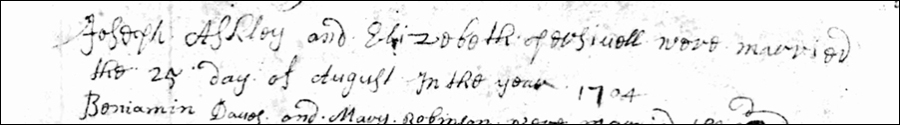 Joseph Ashley and Elizebeth persivell were married
the 25 day of August In the year 1704
Beniamin Daves and Mary Robinson were